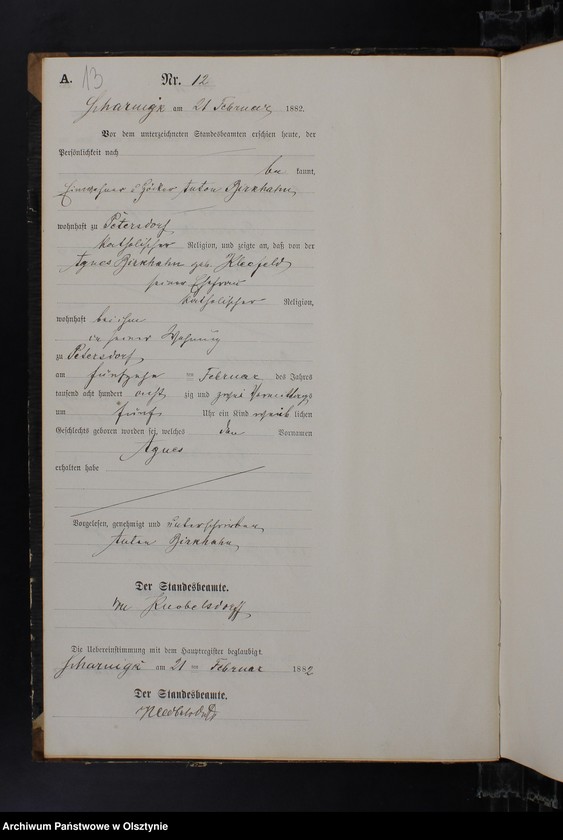 A. 13 Nr. 12
Scharnigk am 21 Februar 1882.
Vor dem unterzeichneten Standesbeamten erschien heute, der
Persönlichkeit nach
be kannt,
Einwohner & Höcker Anton Birkhahn
wohnhaft zu Petersdorf
katholischer Religion, und zeigte an, daß von der
Agnes Birkhahn geb. Kleefeld
seiner Ehefrau
katholischer Religion,
wohnhaft bei ihm
in seiner Wohnung
zu Petersdorf
am fünfzehn ten Februar des Jahrs
tausend acht hundert acht zig und zwei Vormittags
um fünf Uhr ein Kind weib lichen
Geschlechts geboren worden sei, welches den Vornamen
Agnes
erhalten habe
Vorgelesen, genehmigt und unterschrieben
Anton Birkhahn
Der Standesbeamte.
von Knobelsdorff
Die Uebereinstimmung mit dem Hauptregister beglaubigt.
Scharnigk am 21 ten Februar 1882
Der Standesbeamte.
Archiwum Państwowe w Olsztynie